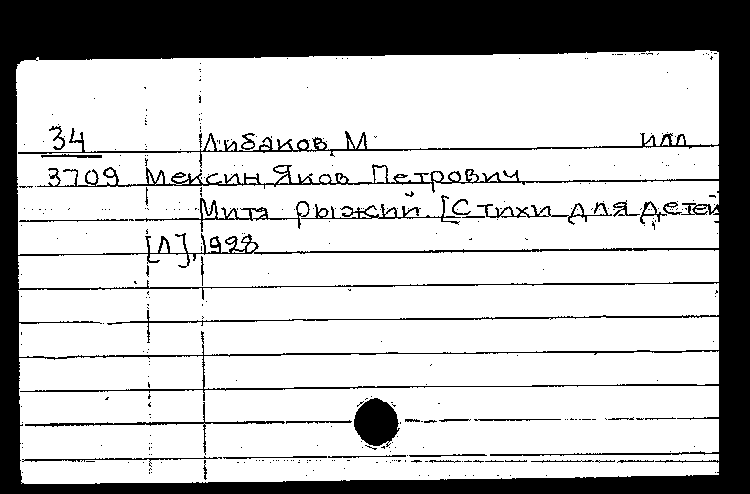 34 Либаков, М илл.
3709 Мексин, Яков Петрович.
Митя рыжий. [Стихи для детей
[Л], 1928